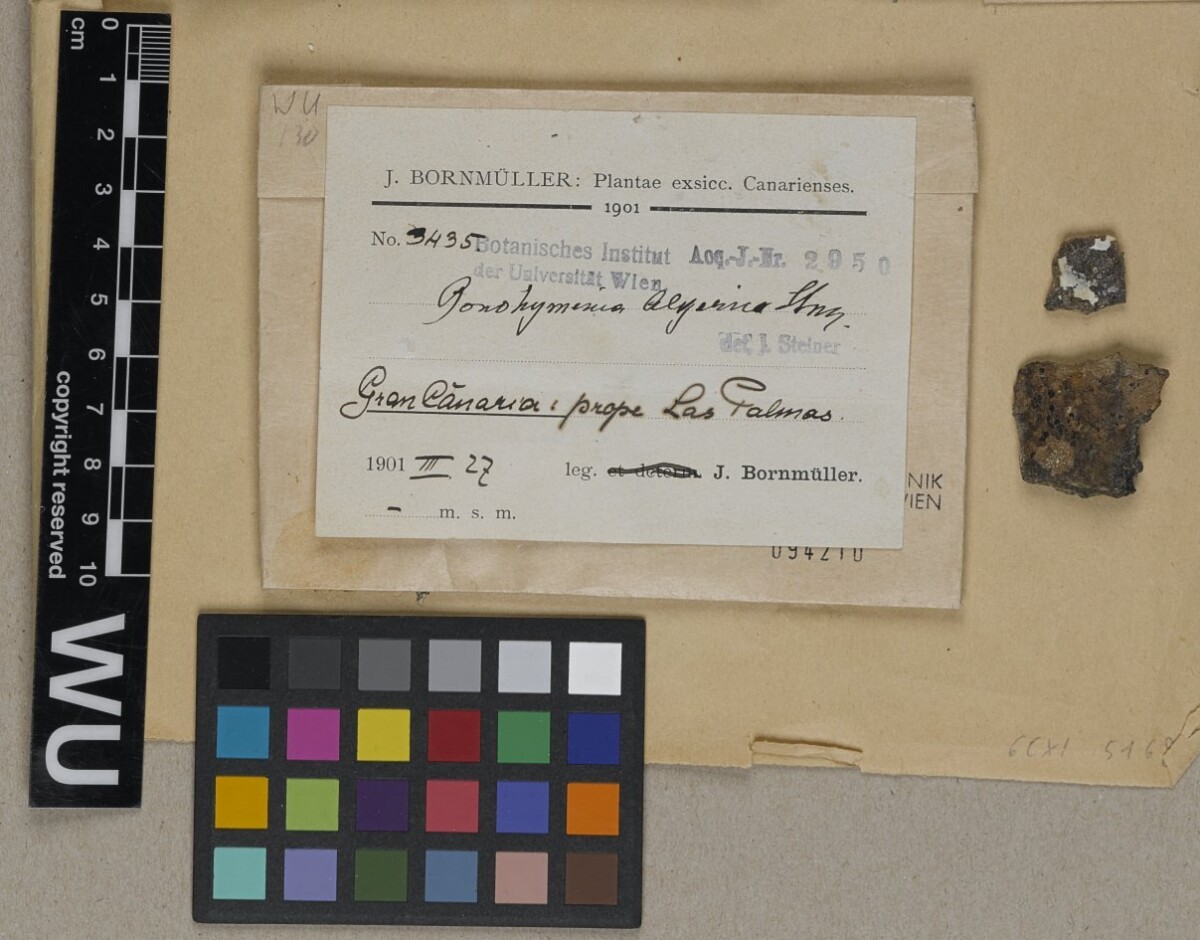 cm
0
1
2
3
4
5
6
7
8
9
10
copyright reserved
WU
WU
130
J. BORNMÜLLER: Plantae exsicc. Canarienses.
1901
No. 3435.
Botanisches Institut Acq.-J.-Nr. 2950
der Universität Wien
algerica
det. J. Steiner
Gran Canaria: prope Las Palmas.
1901 III 27 leg. et determ. J. Bornmüller.
- m. s. m.
NIK
IEN
094210